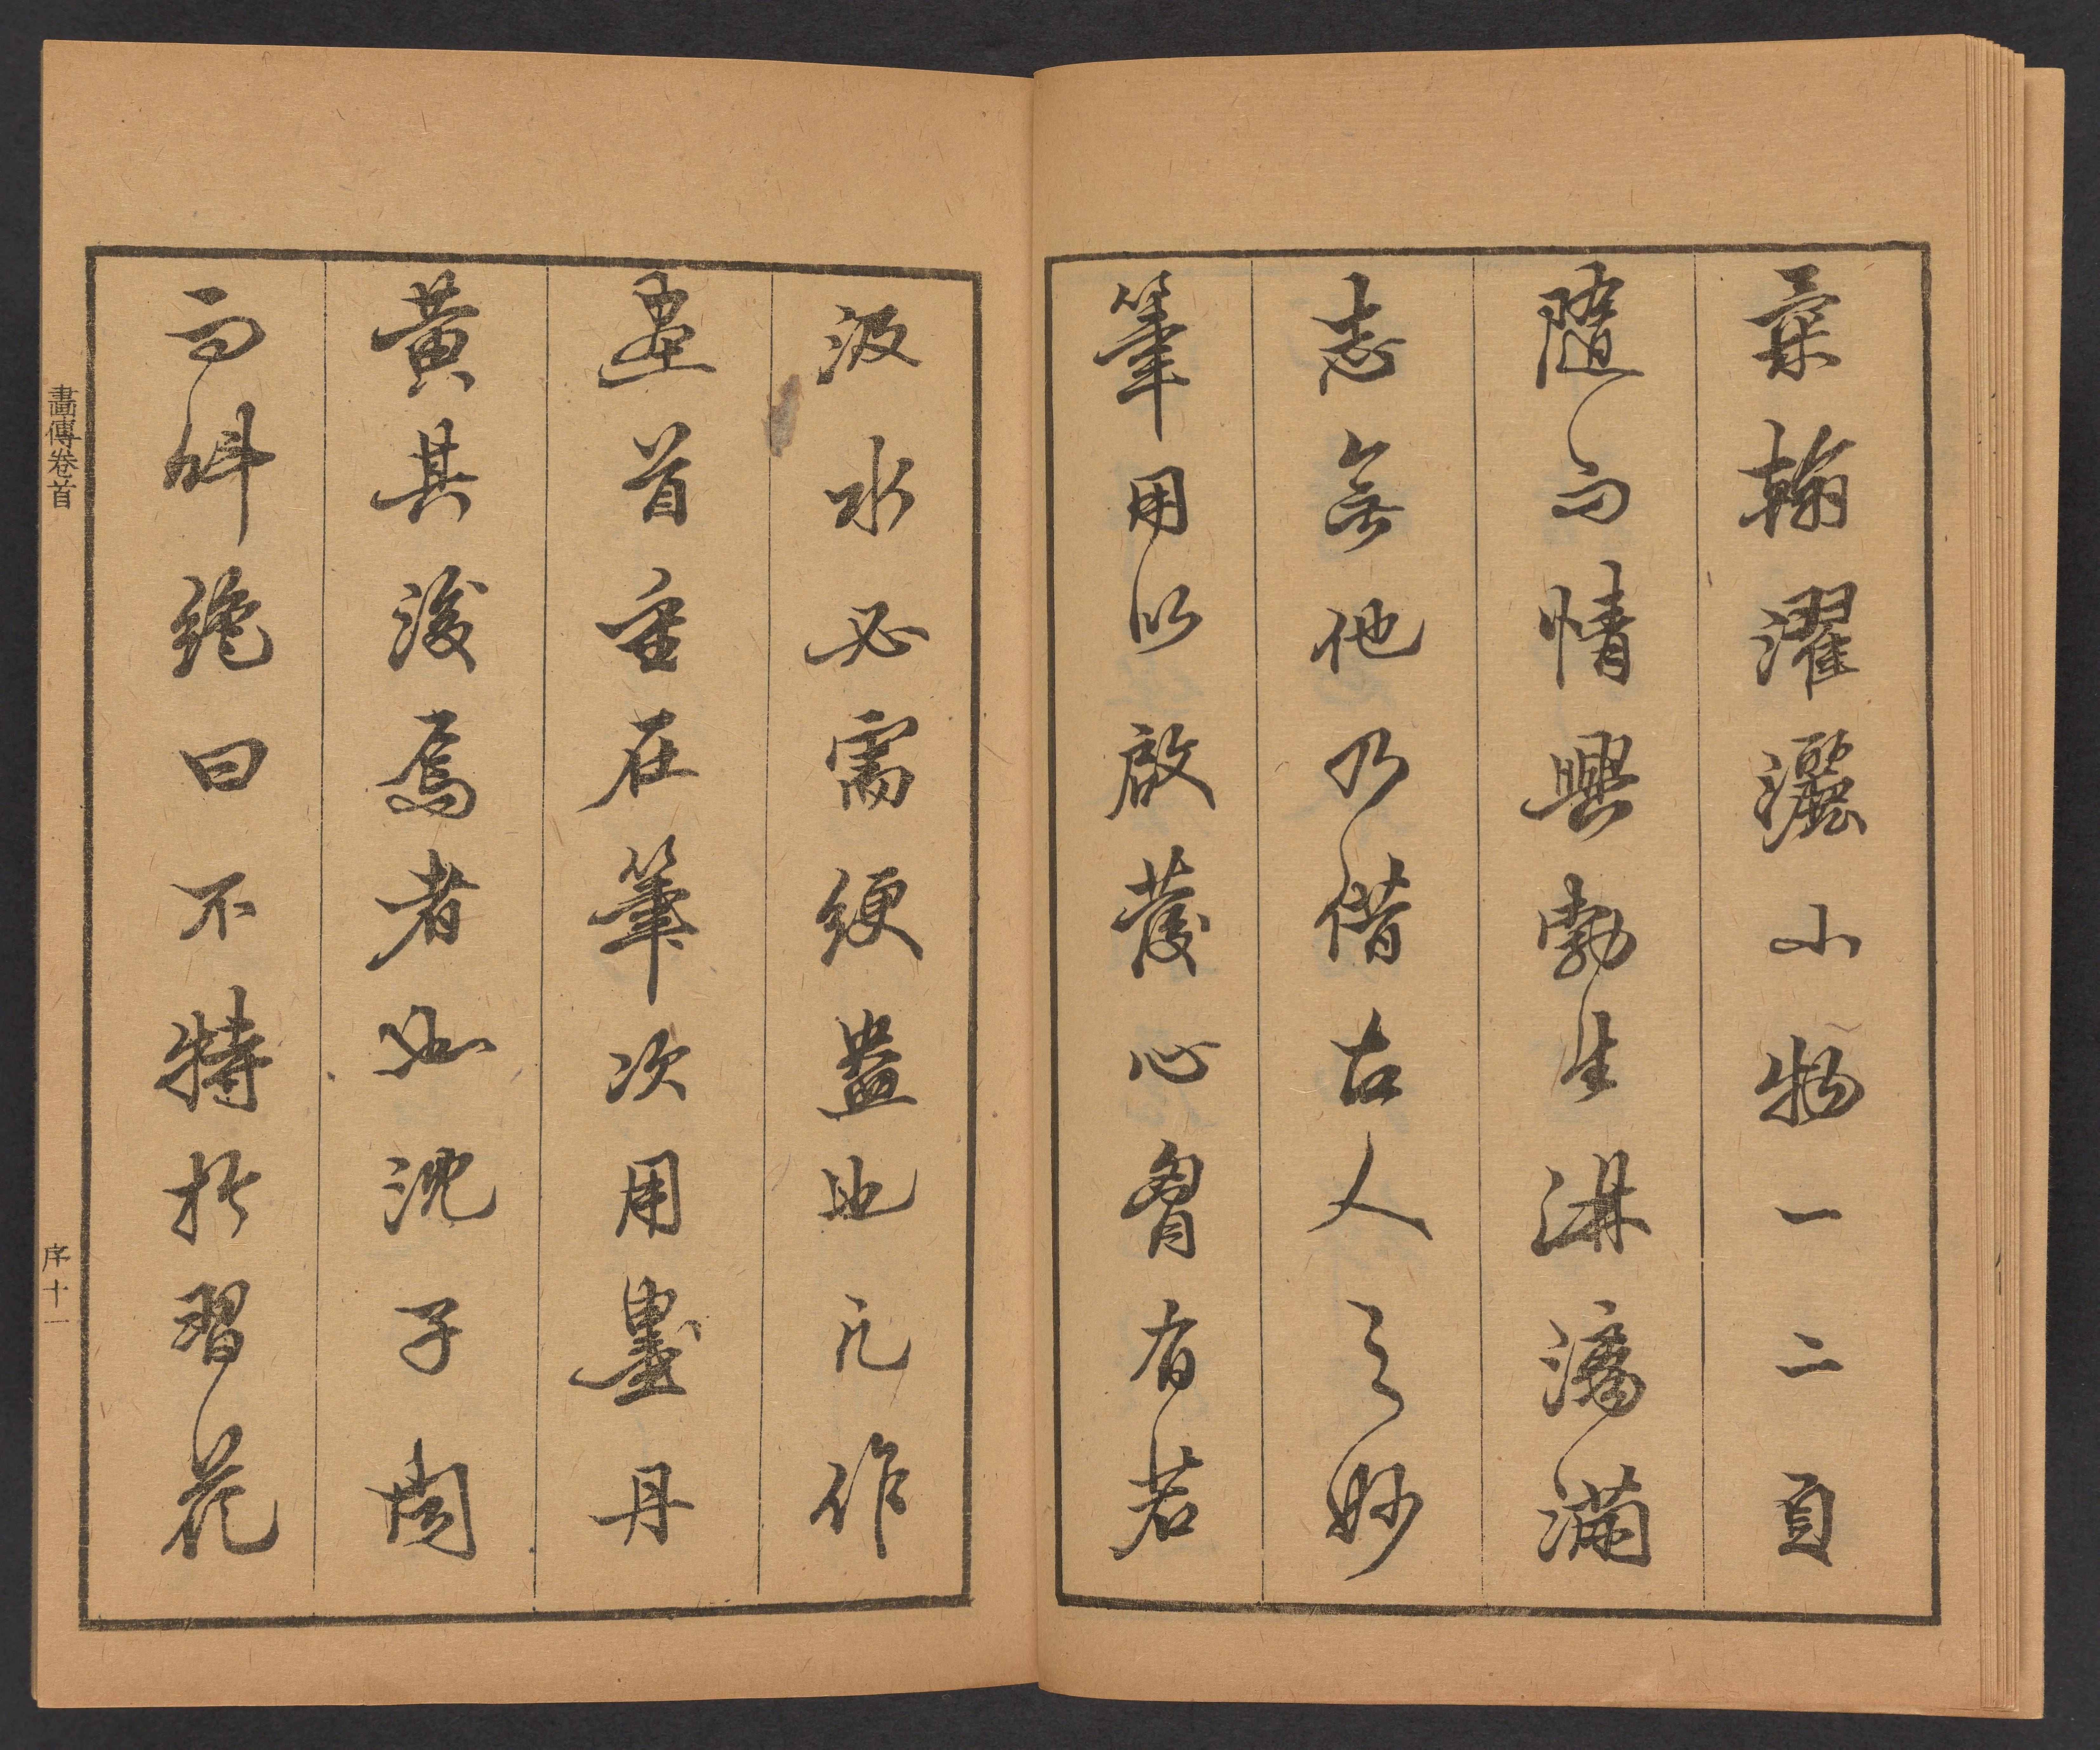 翰濯灑小物一二頁
隨而情興勃生淋漓滿
志無他乃借古人之妙
筆用以啟發心胷有若
汲水必需綆盎也凡作
畫首重在筆次用墨丹
黃其後焉者如沈子
而斜絶曰不特於習花
畫傳卷首
序十一